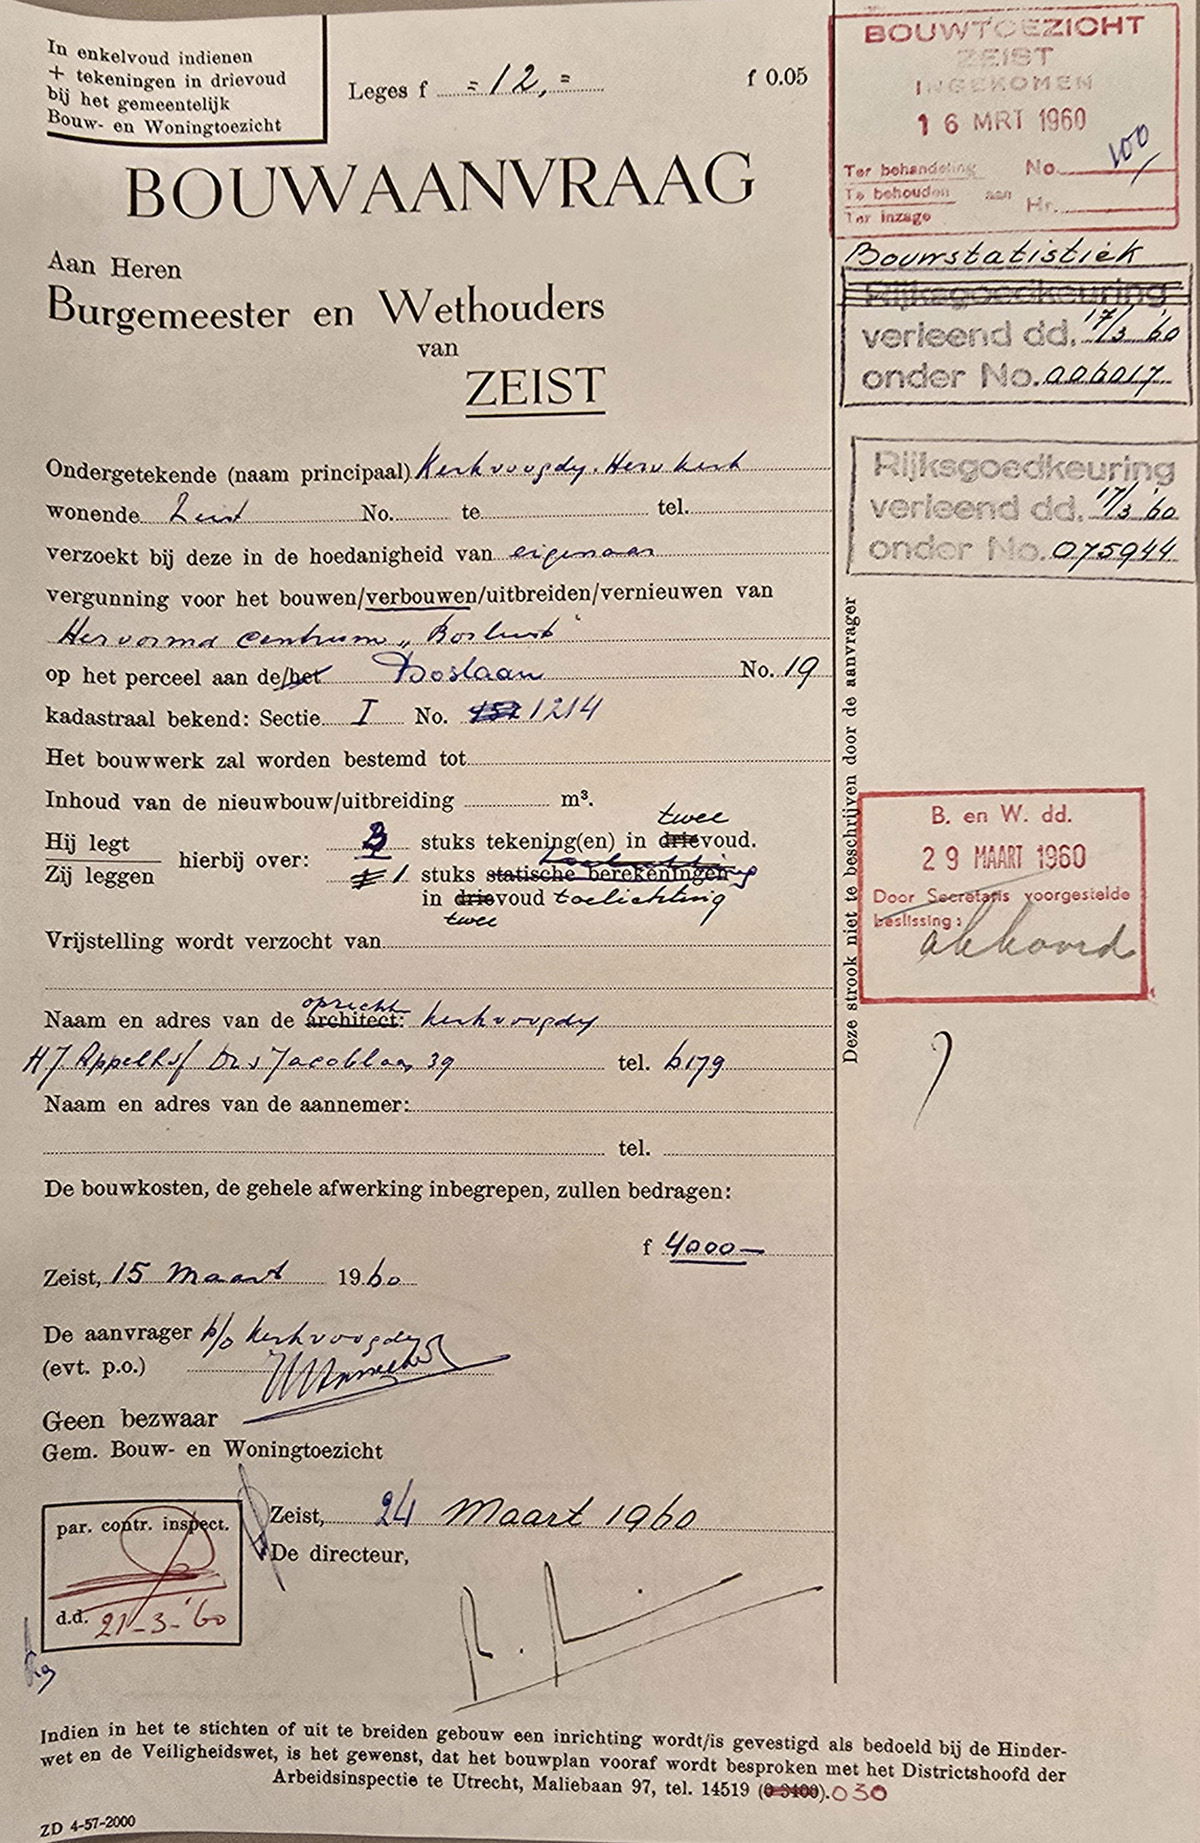 In enkelvoud indienen
+ tekeningen in drievoud
bij het gemeentelijk
Bouw- en Woningtoezicht
Leges f = 12,= f 0.05
BOUWAANVRAAG
Aan Heren
Burgemeester en Wethouders
van
ZEIST
Ondergetekende (naam principaal) Kerkvoogdy. Herv kerk
wonende Zeist No. te tel.
verzoekt bij deze in de hoedanigheid van eigenaar
vergunning voor het bouwen/verbouwen/uitbreiden/vernieuwen van
Hervormd centrum „ Boslust "
op het perceel aan de/het Boslaan No. 19
kadastraal bekend: Sectie I No. 1214
Het bouwwerk zal worden bestemd tot
Inhoud van de nieuwbouw/uitbreiding m³.
twee
Hij legt
Zij leggen
hierbij over: 3 stuks tekening(en) in drievoud.
1 stuks statische berekeningen
in drievoud toelichting
twee
Vrijstelling wordt verzocht van
Naam en adres van de architect: kerkvoogdy
H J Appelhof Jacoblaan 39 tel. 6179
Naam en adres van de aannemer:
tel.
De bouwkosten, de gehele afwerking inbegrepen, zullen bedragen:
f 4000—
Zeist, 15 Maart 1960
De aanvrager p/o kerkvoogdy
(evt. p.o.)
Geen bezwaar
Gem. Bouw- en Woningtoezicht
par. contr. inspect.
d.d. 21-3-'60
Zeist, 24 Maart 1960
De directeur,
Indien in het te stichten of uit te breiden gebouw een inrichting wordt/is gevestigd als bedoeld bij de Hinder-
wet en de Veiligheidswet, is het gewenst, dat het bouwplan vooraf wordt besproken met het Districtshoofd der
Arbeidsinspectie te Utrecht, Maliebaan 97, tel. 14519 (0-3400). 030
ZD 4-57-2000
BOUWTOEZICHT
ZEIST
INGEKOMEN
16 MRT 1960
Ter behandeling No. 100
Te behouden aan
Hr.
Ter inzage
Bouwstatistiek
Rijksgoedkeuring
verleend dd. 17/3 '60
onder No. 006017
Rijksgoedkeuring
verleend dd. 17/3 '60
onder No. 075944
Deze strook niet te beschrijven door de aanvrager
B. en W. dd.
29 MAART 1960
Door Secretaris voorgestelde
beslissing:
akkoord